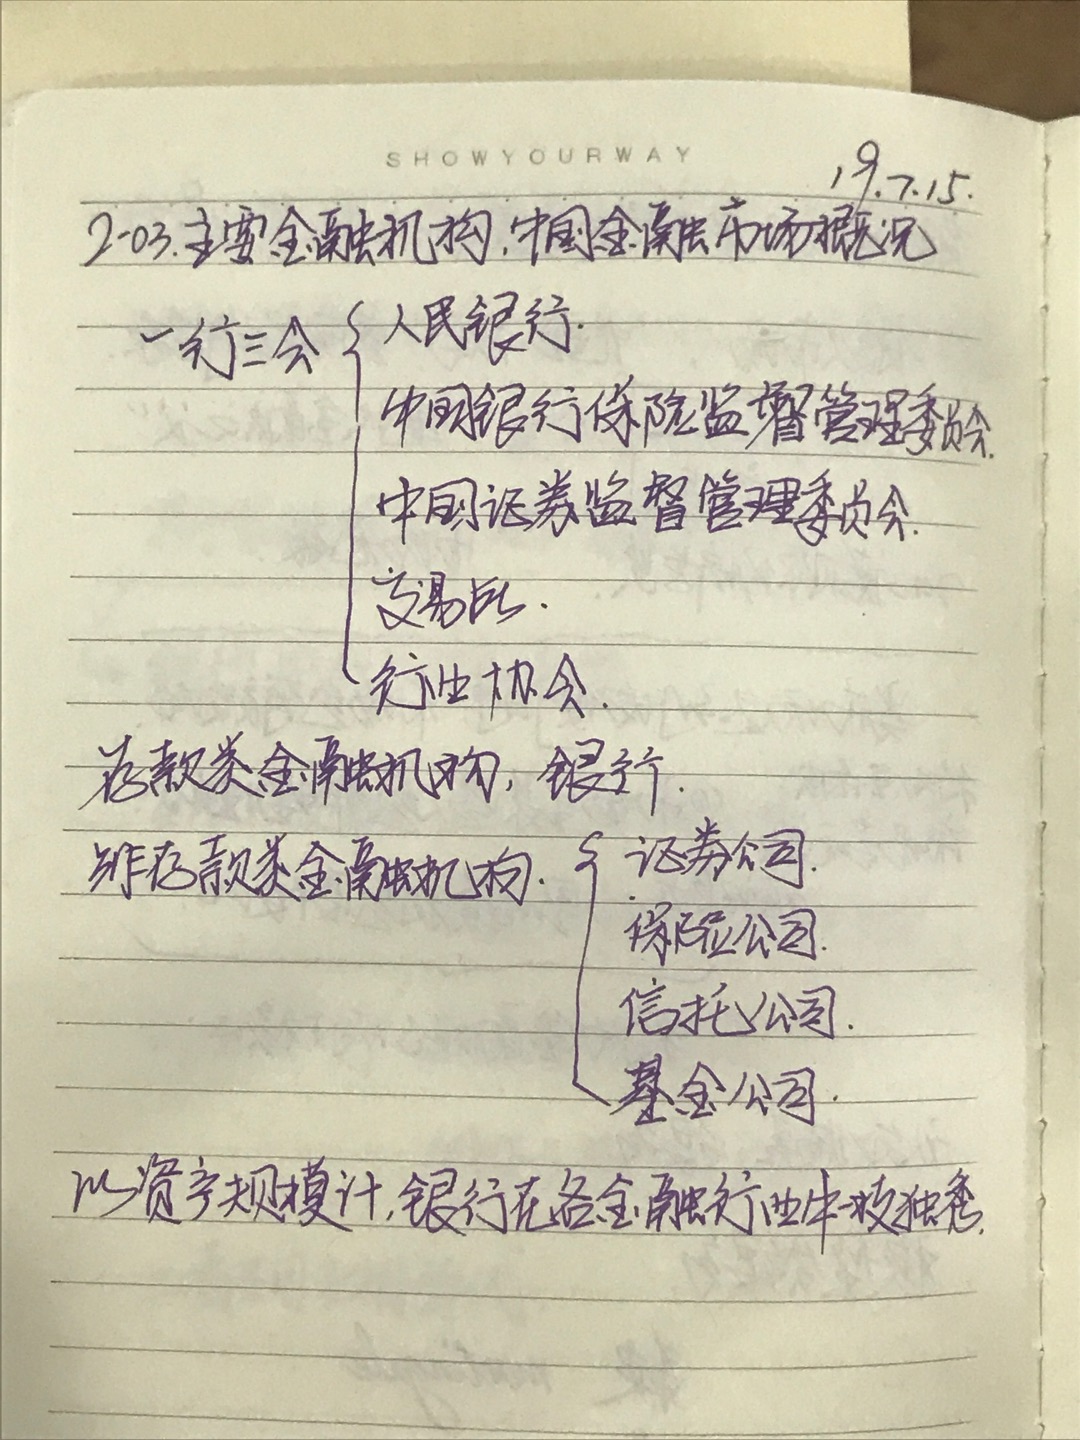 SHOWYOURWAY
19.7.15.
2-03.主要金融机构.中国金融市场概况
一行三会
人民银行.
中国银行保险监督管理委员会.
中国证券监督管理委员会.
交易所.
行业协会.
存款类金融机构,银行.
非存款类金融机构.
证券公司.
保险公司.
信托公司.
基金公司.
以资产规模计,银行在各金融行业中一枝独秀.